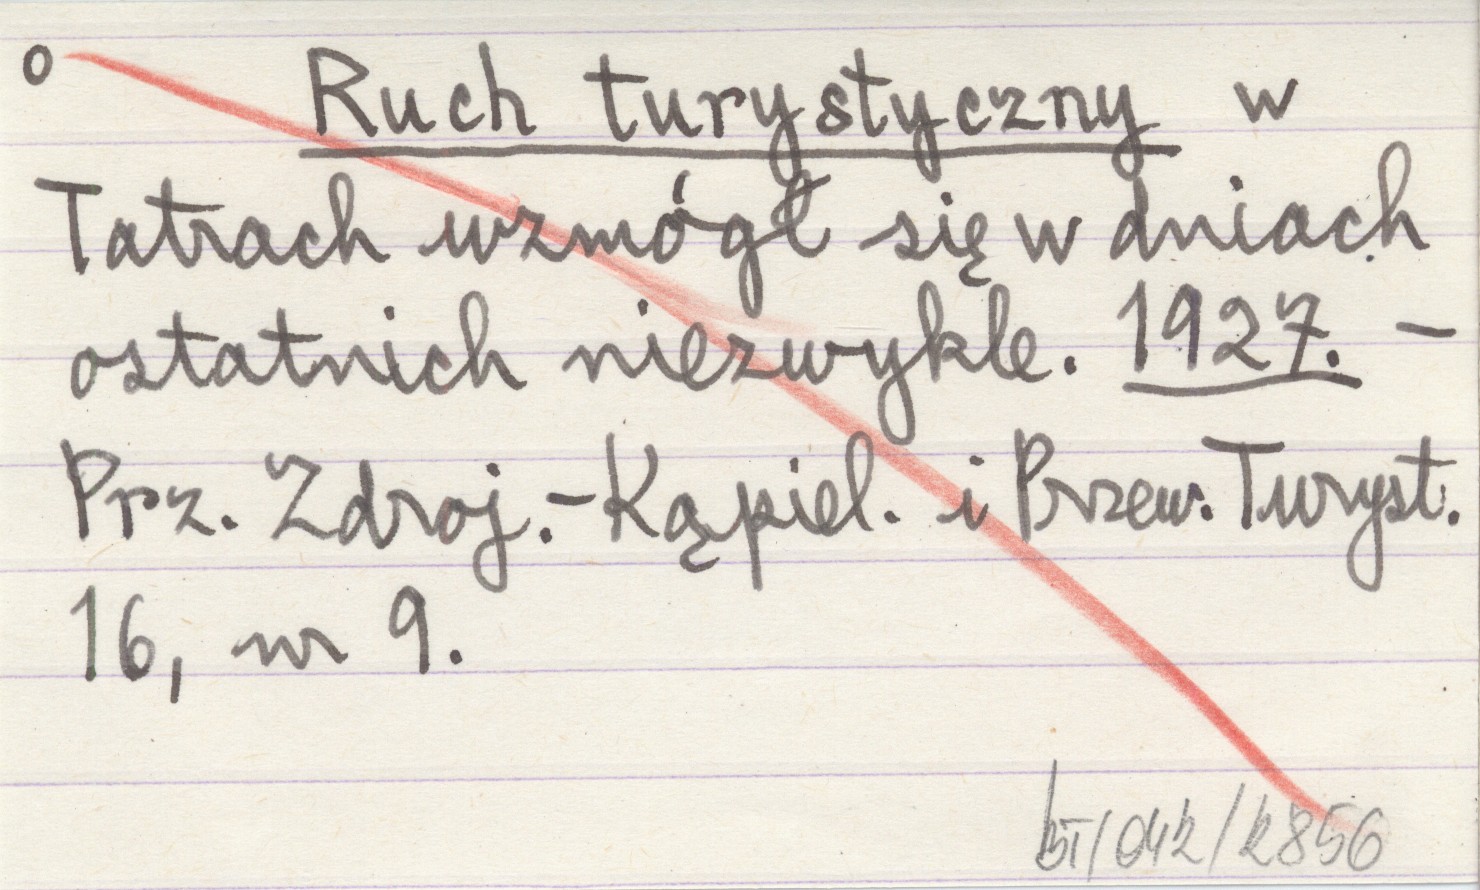 o Ruch turystyczny w
Tatrach wzmógł się w dniach
ostatnich niezwykle. 1927. –
Prz. Zdroj.-Kąpiel. i Przew. Turyst.
16, nr 9.
bT/042/2856